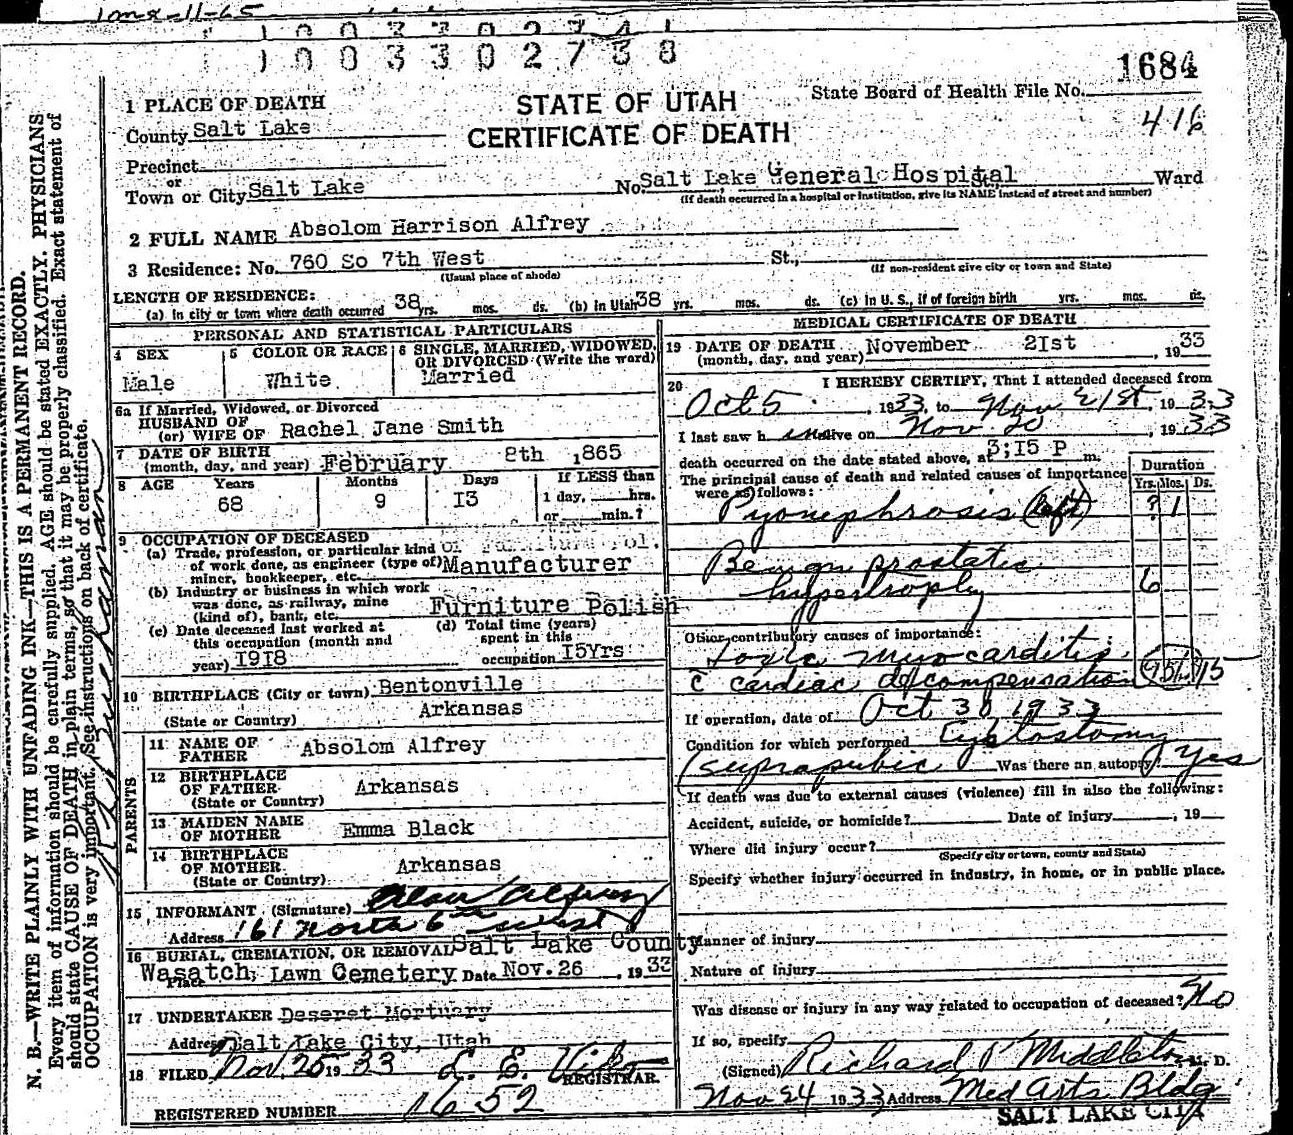 10033027 38
1684
STATE OF UTAH
CERTIFICATE OF DEATH
State Board of Health File No.
416
1 PLACE OF DEATH
County Salt Lake
Precinct
or
Town or City Salt Lake No. Salt Lake General Hospital St., Ward
(If death occurred in a hospital or institution, give its NAME instead of street and number)
2 FULL NAME Absolom Harrison Alfrey
3 Residence: No. 760 So 7th West St.,
(Usual place of abode) (If non-resident give city or town and State)
LENGTH OF RESIDENCE:
(a) In city or town where death occurred 38 yrs. mos. ds. (b) in Utah 38 yrs. mos. ds. (c) in U. S., if of foreign birth yrs. mos. ds.
PERSONAL AND STATISTICAL PARTICULARS
4 SEX
Male
5 COLOR OR RACE
White
6 SINGLE, MARRIED, WIDOWED,
OR DIVORCED (Write the word)
Married
6a If Married, Widowed, or Divorced
HUSBAND OF
(or) WIFE OF Rachel Jane Smith
7 DATE OF BIRTH
(month, day, and year) February 8th 1865
8 AGE Years Months Days If LESS than
68 9 I3 1 day, hrs.
or min.?
9 OCCUPATION OF DECEASED
(a) Trade, profession, or particular kind of Furniture Pol.
of work done, as engineer (type of) Manufacturer
miner, bookkeeper, etc.
(b) Industry or business in which work
was done, as railway, mine
(kind of), bank, etc. Furniture Polish
(c) Date deceased last worked at
this occupation (month and
year) I9I8
(d) Total time (years)
spent in this
occupation I5Yrs
10 BIRTHPLACE (City or town) Bentonville
(State or Country) Arkansas
PARENTS
11 NAME OF
FATHER Absolom Alfrey
12 BIRTHPLACE
OF FATHER Arkansas
(State or Country)
13 MAIDEN NAME
OF MOTHER Emma Black
14 BIRTHPLACE
OF MOTHER Arkansas
(State or Country)
15 INFORMANT (Signature) Alfrey
Address 161 North 6th West
16 BURIAL, CREMATION, OR REMOVAL Salt Lake County
Wasatch Lawn Cemetery Date Nov. 26, 1933
Place
17 UNDERTAKER Deseret Mortuary
Address Salt Lake City, Utah
18 FILED Nov. 25 1933
REGISTRAR.
REGISTERED NUMBER 1652
MEDICAL CERTIFICATE OF DEATH
19 DATE OF DEATH November 2Ist, 1933
(month, day, and year)
20 I HEREBY CERTIFY, That I attended deceased from
Oct 5, 1933, to Nov 21st, 1933
I last saw h im alive on Nov 20, 1933
death occurred on the date stated above, at 3;I5 P m.
The principal cause of death and related causes of importance
were as follows:
Duration
Yrs. Mos. Ds.
Pyonephrosis (left) ? 1
Benign prostatic
hypertrophy 6
Other contributory causes of importance:
Toxic myocarditis
c̄ cardiac decompensation
If operation, date of Oct 30 1933
Condition for which performed Cystostomy
(suprapubic Was there an autopsy? Yes
If death was due to external causes (violence) fill in also the following:
Accident, suicide, or homicide? Date of injury , 19
Where did injury occur?
(Specify city or town, county and State)
Specify whether injury occurred in industry, in home, or in public place.
Manner of injury
Nature of injury
Was disease or injury in any way related to occupation of deceased? No
If so, specify
(Signed) Richard P Middleton M. D.
Nov 24 1933 Address Med Arts Bldg.
SALT LAKE CITY
N. B.—WRITE PLAINLY WITH UNFADING INK—THIS IS A PERMANENT RECORD.
Every item of information should be carefully supplied. AGE should be stated EXACTLY. PHYSICIANS
should state CAUSE OF DEATH in plain terms, so that it may be properly classified. Exact statement of
OCCUPATION is very important. (See instructions on back of certificate.